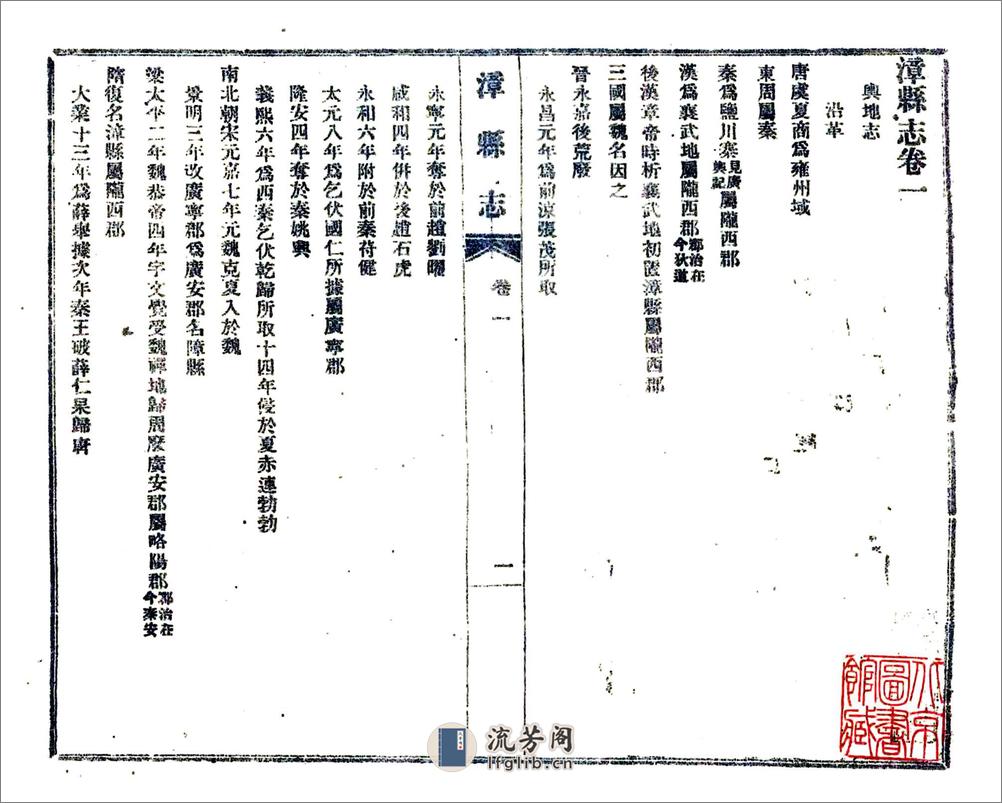 漳縣志卷一
輿地志
沿革
唐虞夏商爲雍州域
東周屬秦
秦爲鹽川寨見廣輿記屬隴西郡
漢爲襄武地屬隴西郡郡治在今狄道
後漢章帝時析襄武地初置漳縣屬隴西郡
三國屬魏名因之
晉永嘉後荒廢
永昌元年爲前涼張茂所取
漳縣志
卷一
一
永寧元年奪於前趙劉曜
咸和四年併於後趙石虎
永和六年附於前秦苻健
太元八年爲乞伏國仁所據屬廣寧郡
隆安四年奪於秦姚興
義熙六年爲西秦乞伏乾歸所取十四年侵於夏赤連勃勃
南北朝宋元嘉七年元魏克夏入於魏
景明三年改廣寧郡爲廣安郡名障縣
梁太平二年魏恭帝四年宇文覺受魏禪地歸周廢廣安郡屬略陽郡郡治在今秦安
隋復名漳縣屬隴西郡
大業十三年爲薛舉據次年秦王破薛仁杲歸唐
北京圖書館藏
流芳阁
lfglib.cn